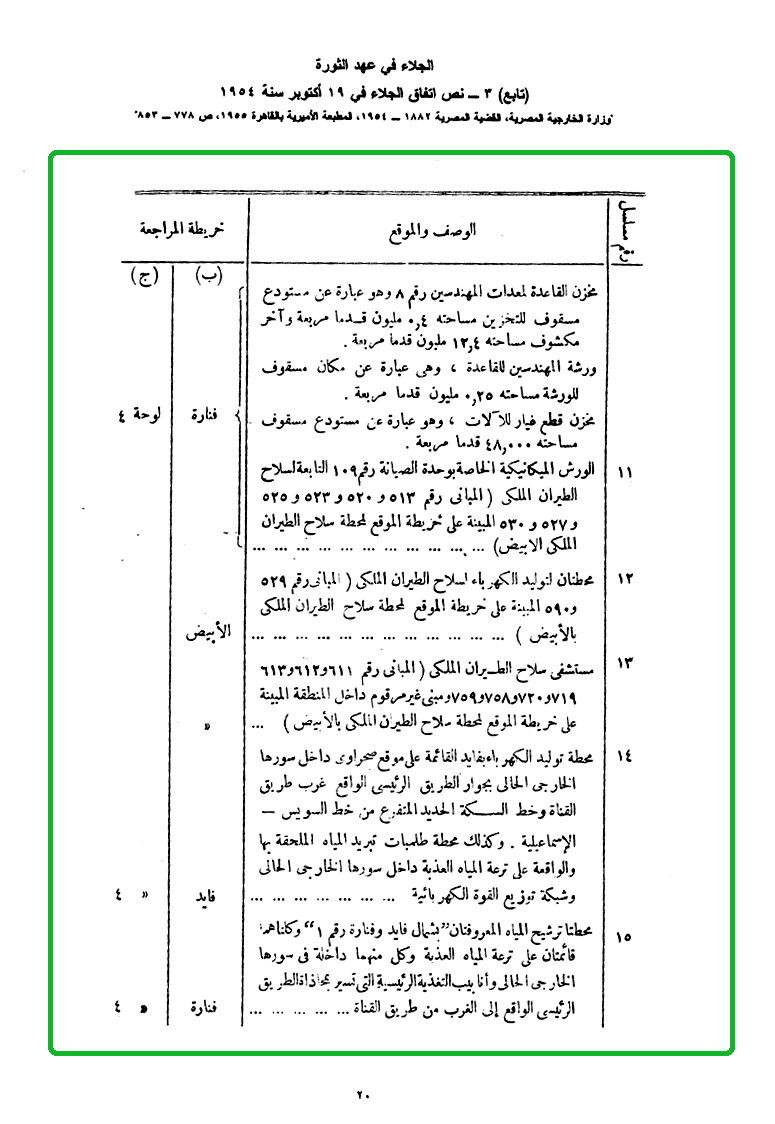 الجلاء في عهد الثورة
(تابع) ٣ ــ نص اتفاق الجلاء في ١٩ أكتوبر سنة ١٩٥٤
"وزارة الخارجية المصرية، القضية المصرية ١٨٨٢ ــ ١٩٥٤، المطبعة الأميرية بالقاهرة ١٩٥٥، ص ٧٧٨ ــ ٨٥٣"
رقم مسلسل الوصف والموقع خريطة المراجعة
(ب) (ج)
مخزن القاعدة لمعدات المهندسين رقم ٨ وهو عبارة عن مستودع
مسقوف للتخزين مساحته ٠,٤ مليون قدما مربعة وآخر
مكشوف مساحته ١٢,٤ مليون قدما مربعة .
ورشة المهندسين للقاعدة ، وهى عبارة عن مكان مسقوف
للورشة مساحته ٠,٢٥ مليون قدما مربعة .
مخزن قطع غيار للآلات ، وهو عبارة عن مستودع مسقوف فنارة لوحة ٤
مساحته ٤٨,٠٠٠ قدما مربعة .
١١ الورش الميكانيكية الخاصة بوحدة الصيانة رقم ١٠٩ التابعة لسلاح
الطيران الملكى ( المبانى رقم ٥١٣ و ٥٢٠ و ٥٢٣ و ٥٢٥
و ٥٢٧ و ٥٣٠ المبينة على خريطة الموقع لمحطة سلاح الطيران
الملكى الابيض) ... ... ... ... ... ... ... ... ... ... ...
١٢ محطتان لتوليد الكهرباء لسلاح الطيران الملكى ( المبانى رقم ٥٢٩
و ٥٩٠ المبينة على خريطة الموقع لمحطة سلاح الطيران الملكى
بالأبيض ) ... ... ... ... ... ... ... ... ... ... ... الأبيض
١٣ مستشفى سلاح الطيران الملكى ( المبانى رقم ٦١١ و٦١٢ و٦١٣
و٧١٩ و٧٢٠ و٧٥٨ و٧٥٩ ومبنى غير مرقوم داخل المنطقة المبينة
على خريطة الموقع لمحطة سلاح الطيران الملكى بالأبيض ) ... »
١٤ محطة توليد الكهرباء بفايد القائمة على موقع صحراوى داخل سورها
الخارجى الحالى بجوار الطريق الرئيسى الواقع غرب طريق
القناة وخط السكة الحديد المتفرع من خط السويس –
الإسماعيلية . وكذلك محطة طلمبات تبريد المياه الملحقة بها
والواقعة على ترعة المياه العذبة داخل سورها الخارجى الحالى
وشبكة توزيع القوة الكهربائية ... ... ... ... ... ... ... فايد » ٤
١٥ محطتا ترشيح المياه المعروفتان "بشمال فايد وفنارة رقم ١" وكلتاهما
قائمتان على ترعة المياه العذبة وكل منهما داخلة فى سورها
الخارجى الحالى وأنابيب التغذية الرئيسية التى تسير بمحاذاة الطريق
الرئيسى الواقع إلى الغرب من طريق القناة ... ... ... ... ... فنارة » ٤
٢٠